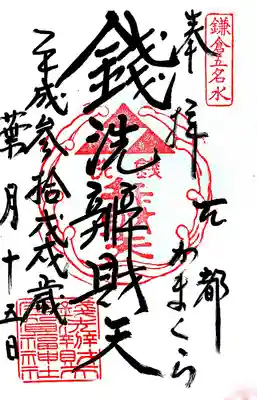 鎌倉五名水
奉拝
古都
かまくら
錢洗辨財天
平成参拾戊戌歳
葉月十五日